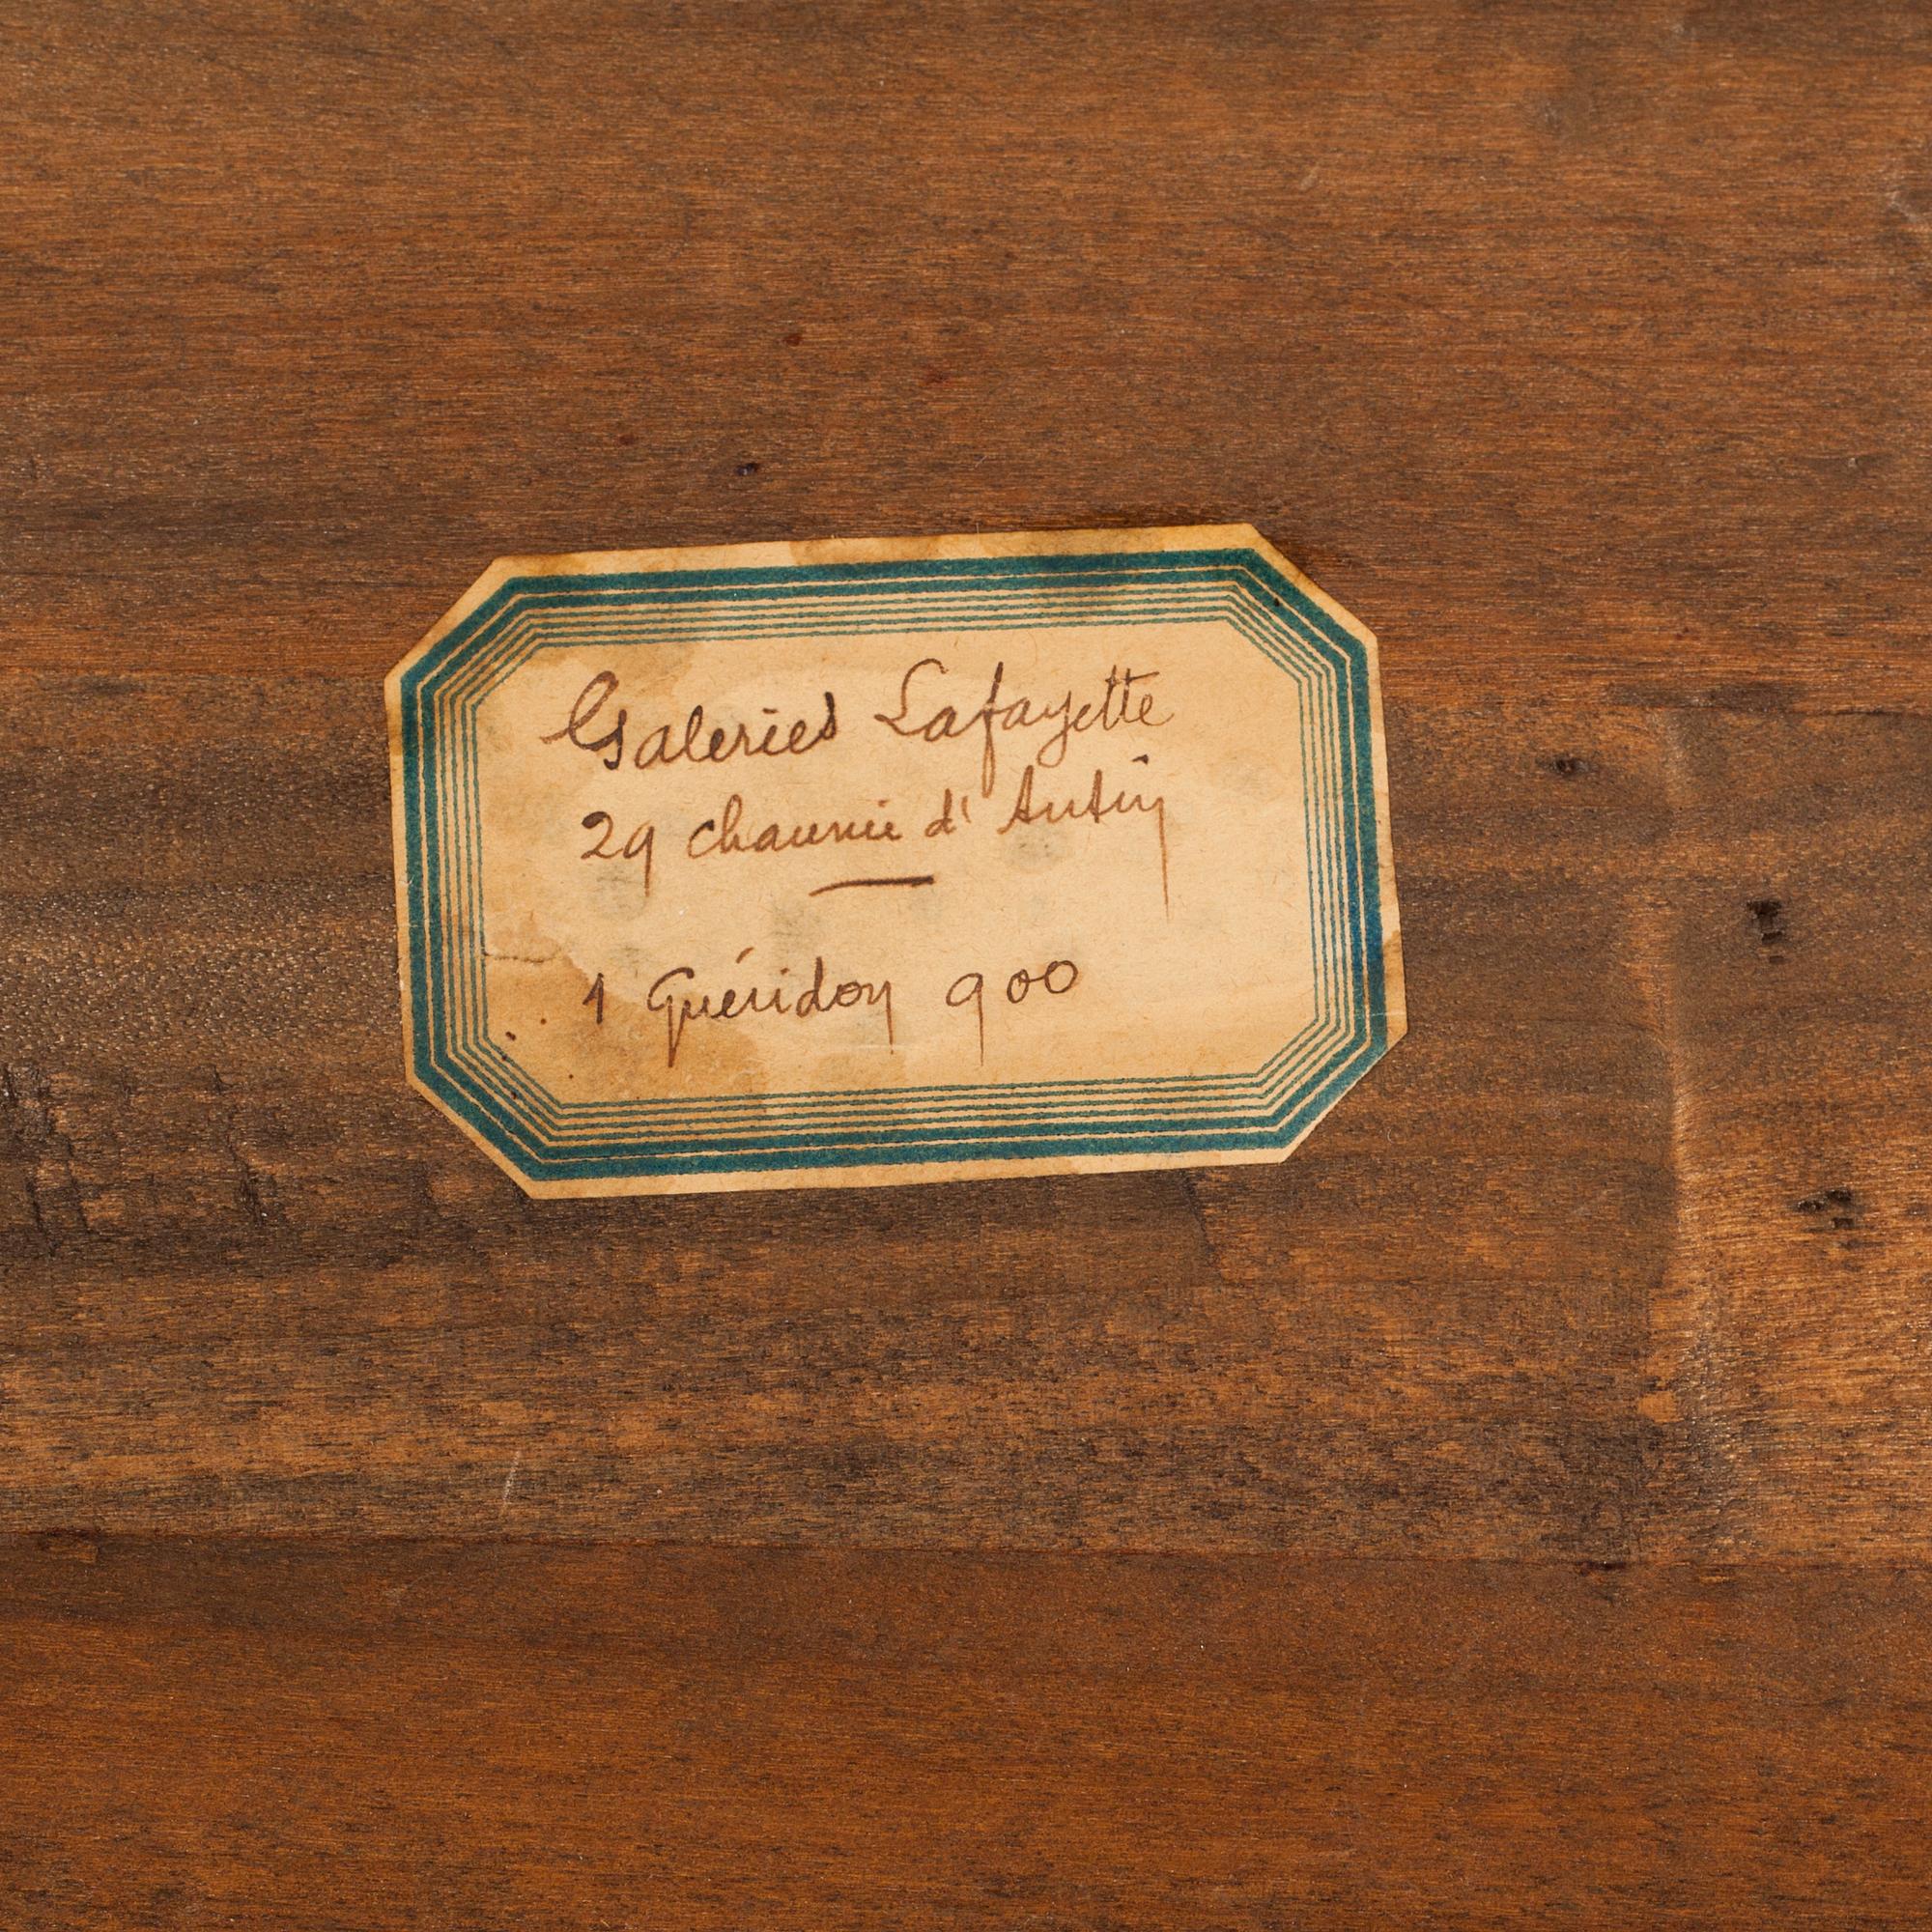 Galeries Lafayette
29 chaussée d'Antin
1 Guéridon 900